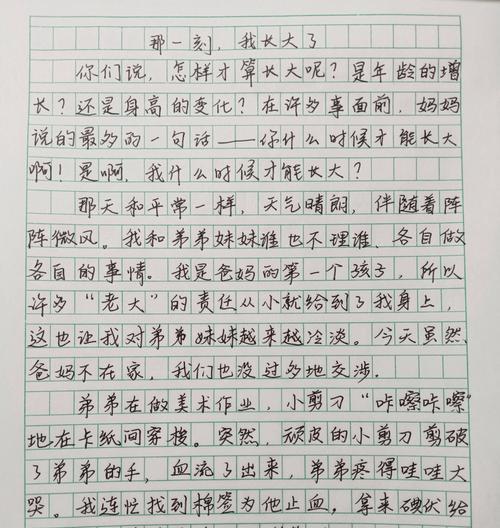 那一刻，我长大了
你们说，怎样才算长大呢？是年龄的增
长？还是身高的变化？在许多事面前，妈妈
说的最多的一句话——你什么时候才能长大
啊！是啊，我什么时候才能长大？
那天和平常一样，天气晴朗，伴随着阵
阵微风。我和弟弟妹妹谁也不理谁、各自做
各自的事情。我是爸妈的第一个孩子，所以
许多“老大”的责任从小就给到了我身上，
这也让我对弟弟妹妹越来越冷淡。今天虽然
爸妈不在家，我们也没过多地交涉.
弟弟在做美术作业，小剪刀“咔嚓咔嚓”
地在卡纸间穿梭。突然，顽皮的小剪刀剪破
了弟弟的手，血流了出来，弟弟疼得哇哇大
哭。我连忙找到棉签为他止血，拿来碘伏给